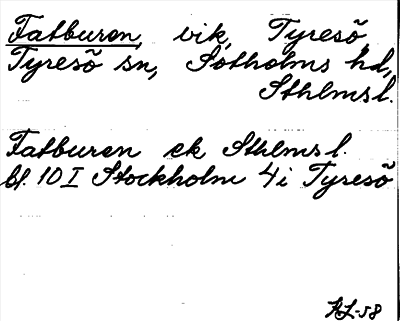 Fatburen, vik, Tyresö
Tyresö sn, Sotholms hd,
Sthlms l.
Fatburen ek Sthlms l.
bl. 10 I Stockholm 4 i Tyresö